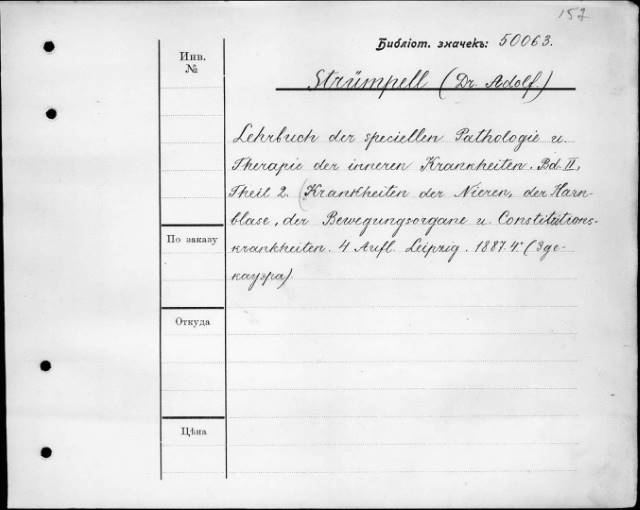 152
Библіот. значекъ: 50063.
Инв.
№
Strümpell (Dr. Adolf.)
Lehrbuch der speciellen Pathologie u.
Therapie der inneren Krankheiten. Bd. II,
Theil 2. (Krankheiten der Nieren, der Harn-
blase, der Bewegungsorgane u. Constitutions-
krankheiten. 4 Aufl. Leipzig. 1887. 4° (3 де-
каузра)
По заказу
Откуда
Цѣна